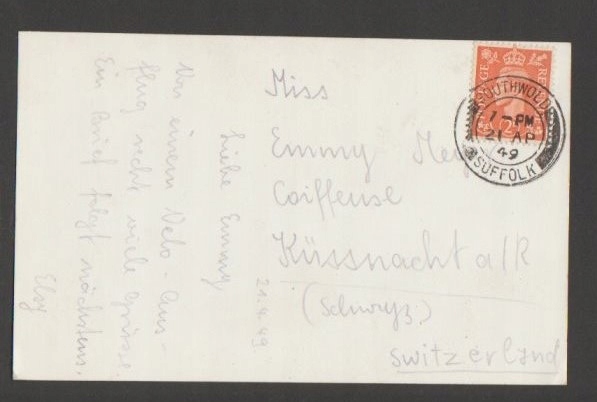 Liebe Emmy
Von einem Velo-Aus-
flug recht viele Grüsse.
Ein Brief folgt nächstens.
Elsy
21.4.49
Miss
Emmy
Coiffeuse
Küssnacht a/R
(Schwyz)
Switzerland
SOUTHWOLD
7 - PM
21 AP
49
SUFFOLK
POSTAGE
RE
2